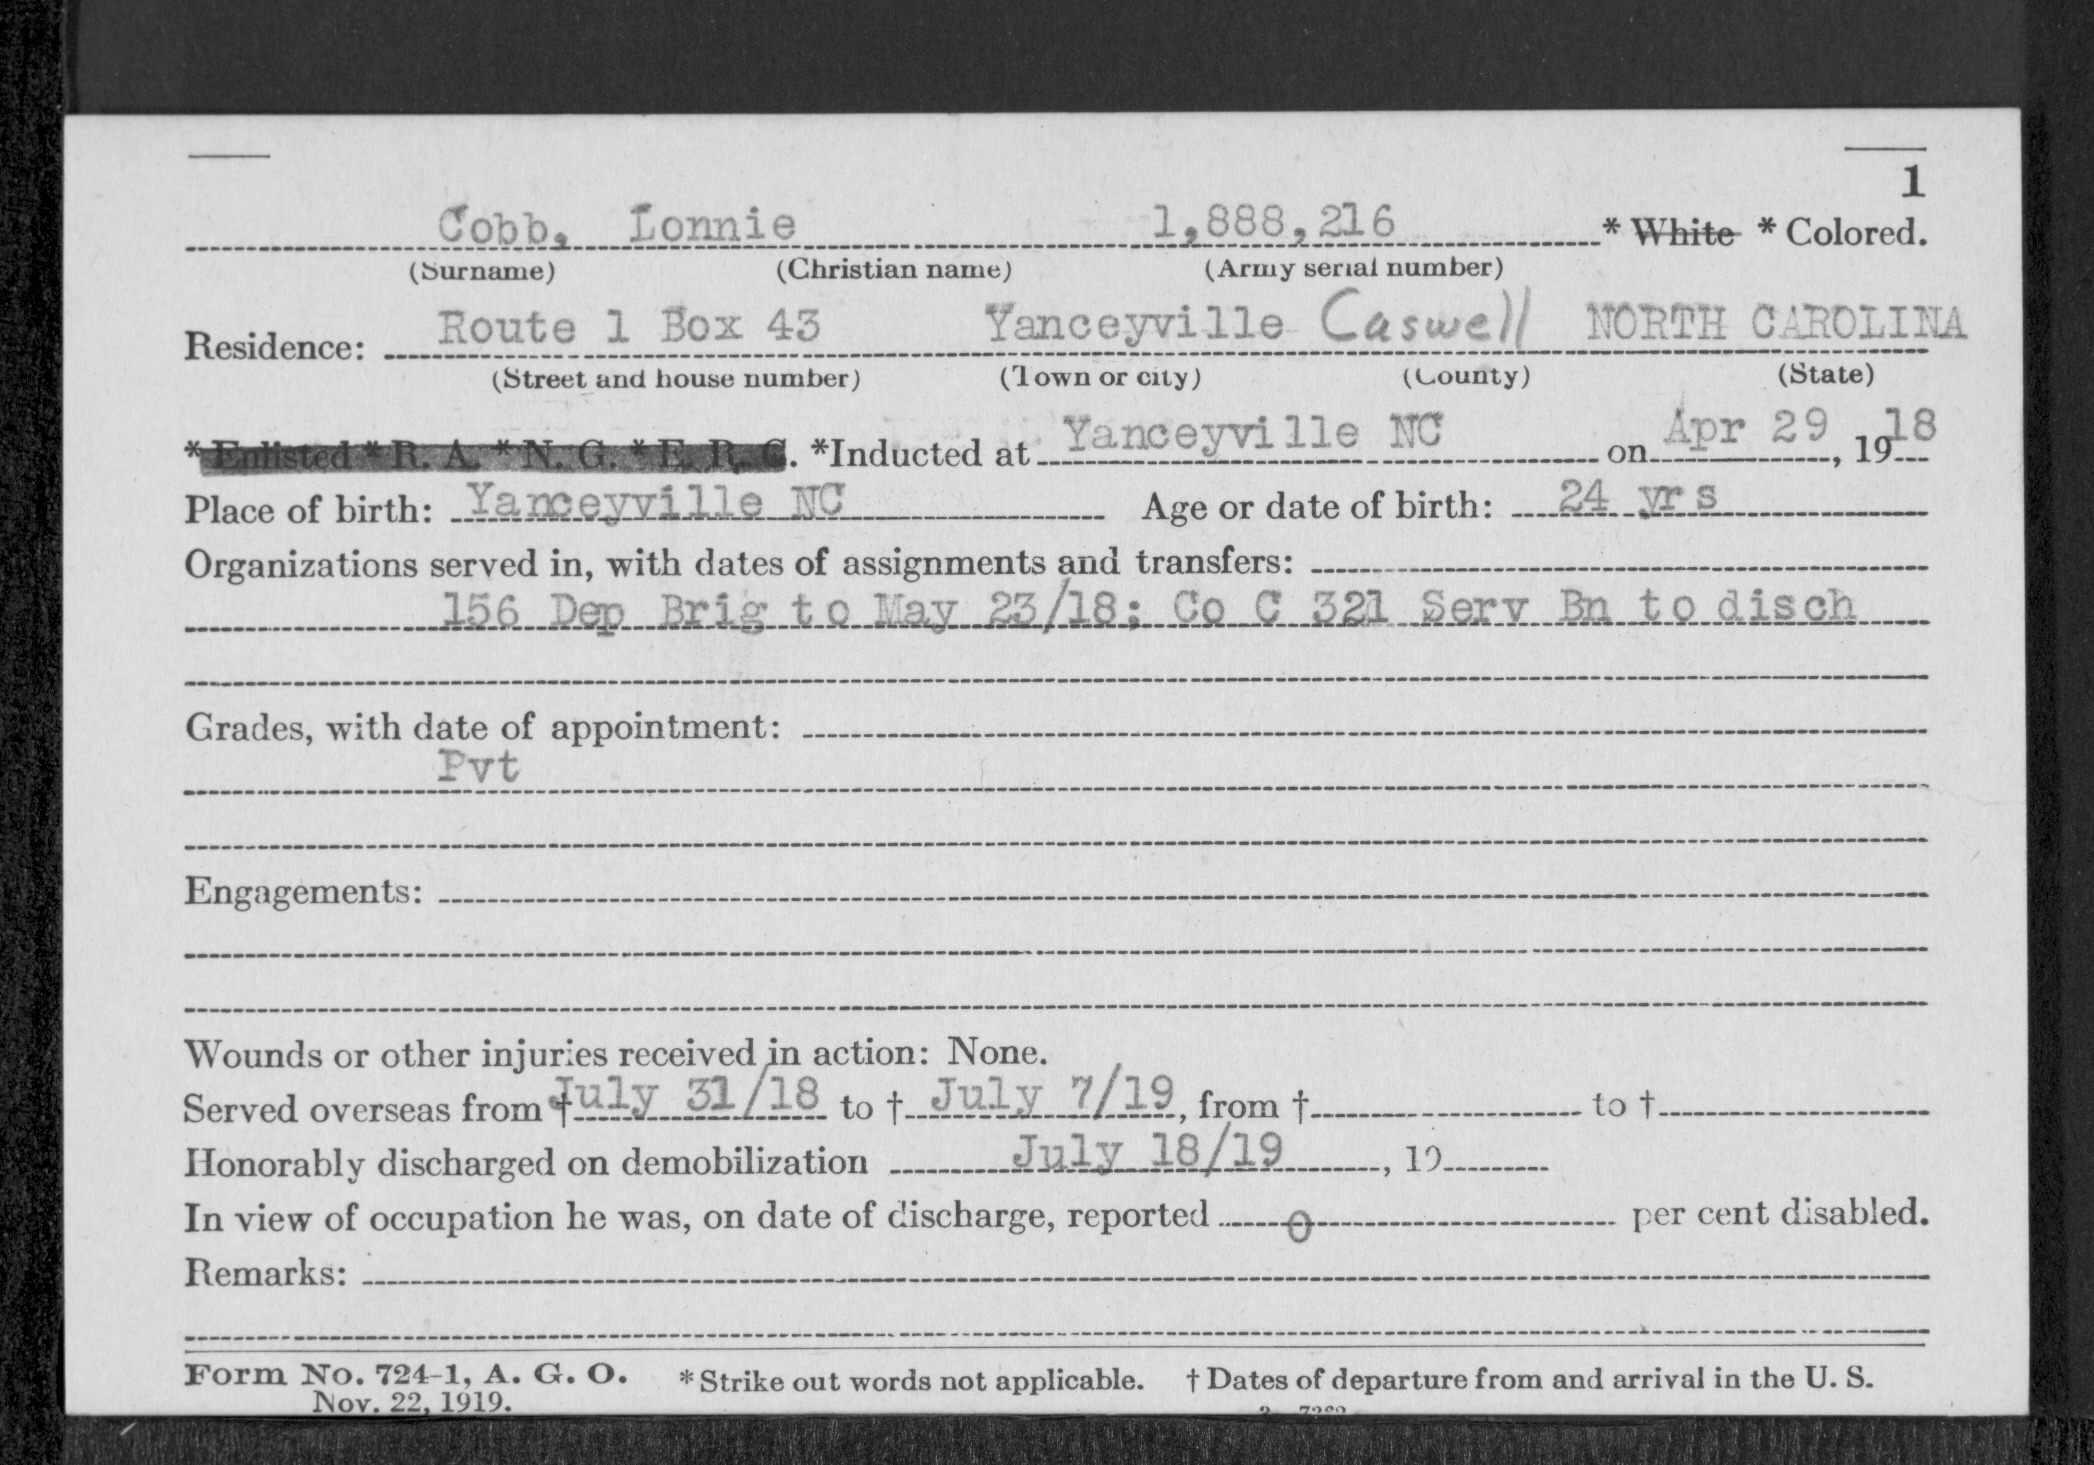 1
Cobb, Lonnie 1,888,216 * White * Colored.
(Surname) (Christian name) (Army serial number)
Residence: Route 1 Box 43 Yanceyville Caswell NORTH CAROLINA
(Street and house number) (Town or city) (County) (State)
* Enlisted * R. A. * N. G. * E. R. C. *Inducted at Yanceyville NC on Apr 29, 1918
Place of birth: Yanceyville NC Age or date of birth: 24 yrs
Organizations served in, with dates of assignments and transfers:
156 Dep Brig to May 23/18; Co C 321 Serv Bn to disch
Grades, with date of appointment:
Pvt
Engagements:
Wounds or other injuries received in action: None.
Served overseas from † July 31/18 to † July 7/19, from † to †
Honorably discharged on demobilization July 18/19, 19
In view of occupation he was, on date of discharge, reported 0 per cent disabled.
Remarks:
Form No. 724-1, A. G. O. * Strike out words not applicable. † Dates of departure from and arrival in the U. S.
Nov. 22, 1919.